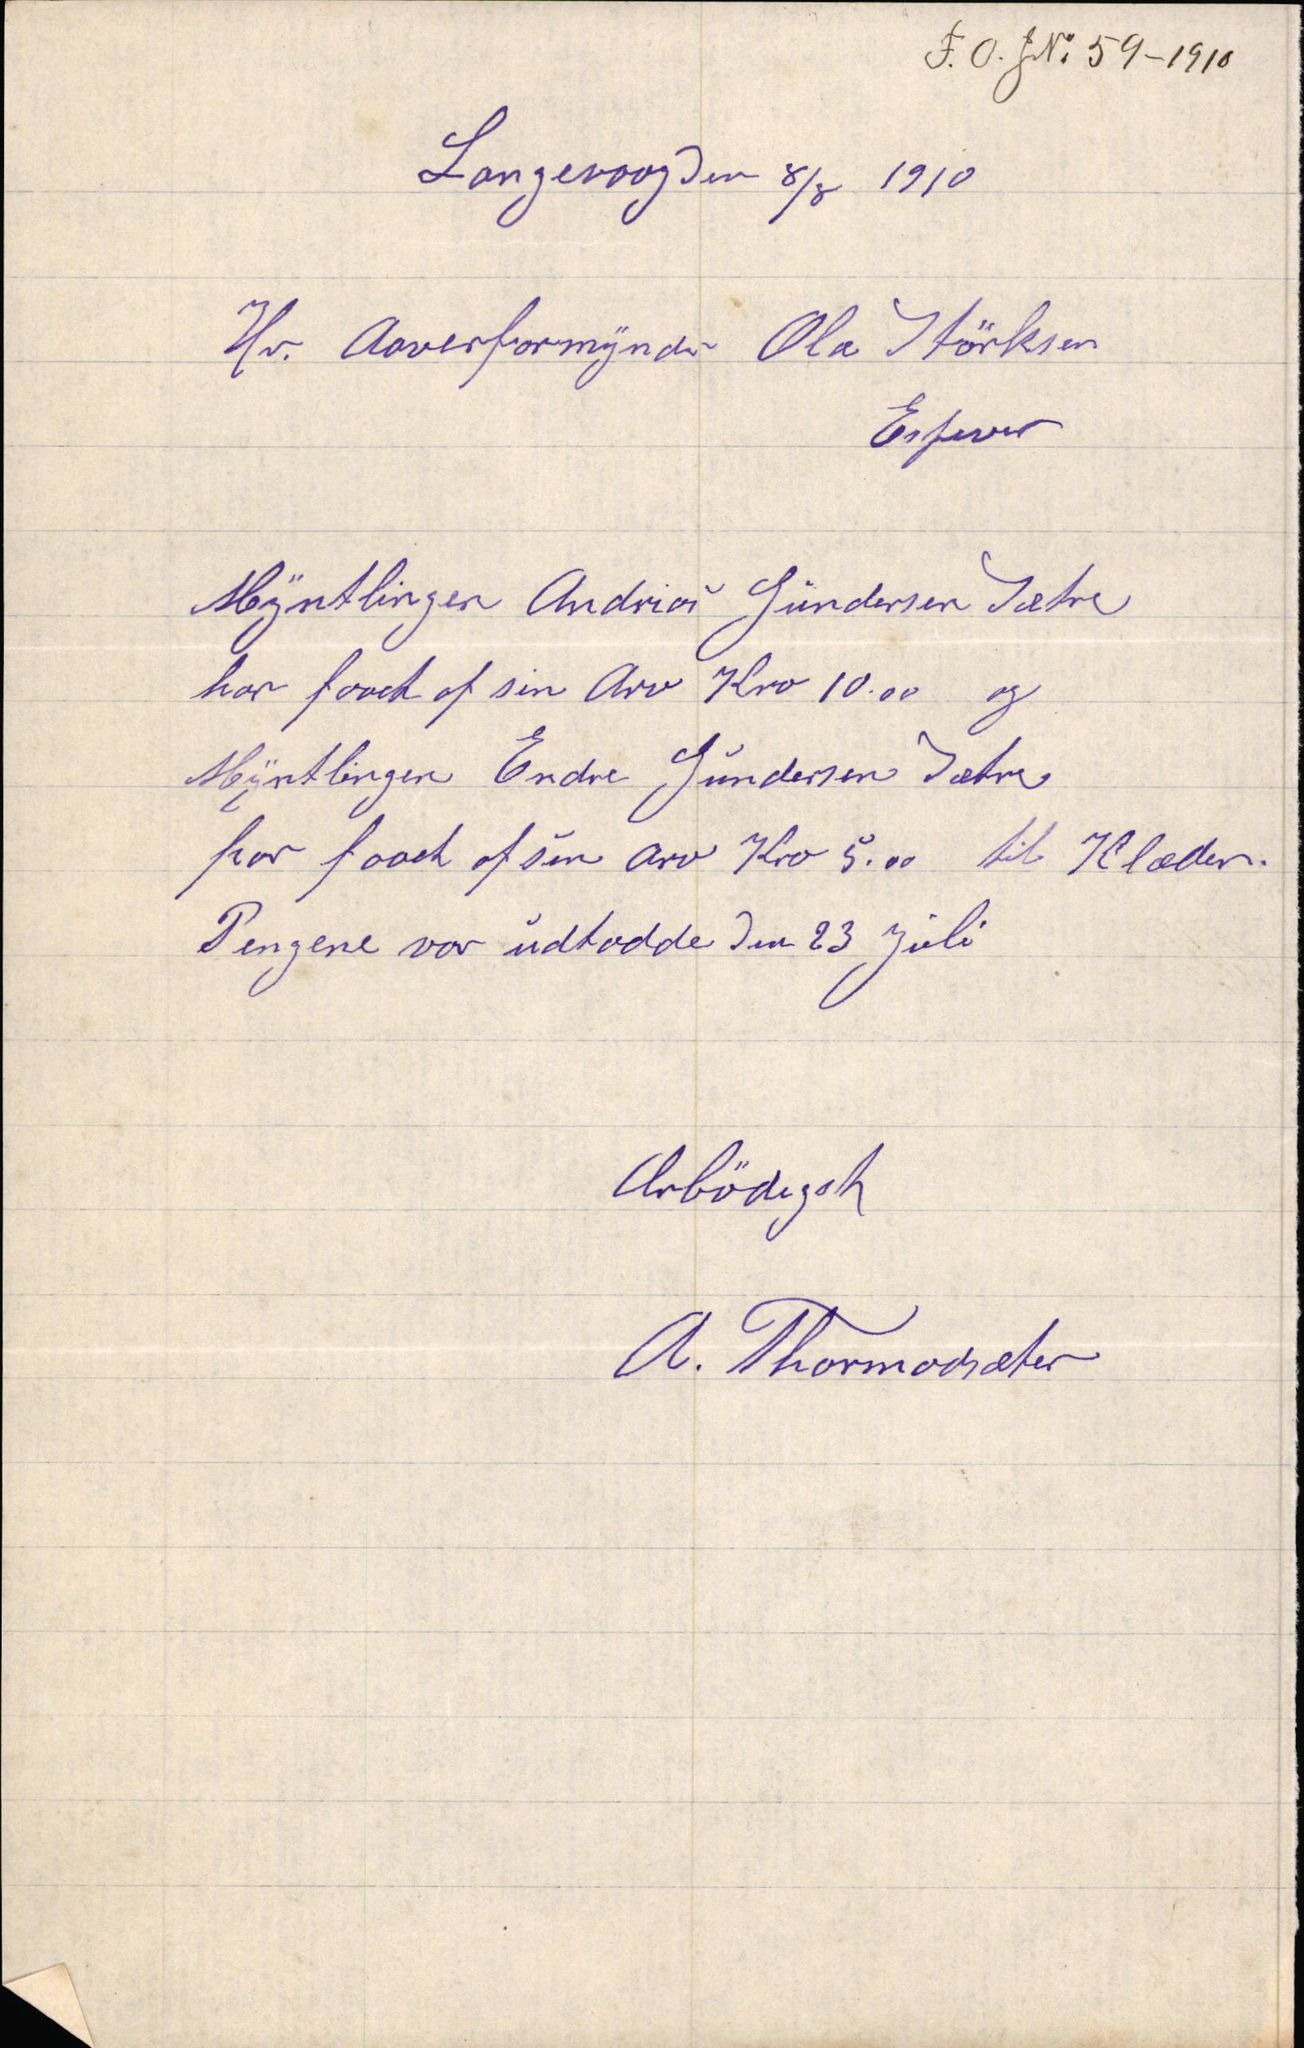 F. O. J№ 59-1910
Langevaag den 8/8 1910
Hr. Aaverformÿnder Ola Störksen
Espevær
Mÿntlingen Andrias Gundersen Sætre
har faaet af sin Arv Kro 10.00 og
Mÿntlingen Endre Gundersen Sætre
har faaet af sin arv Kro 5.00 til Klæder.
Pengene var udtadde den 23 juli
Arbödigst
A. Thormodsæter